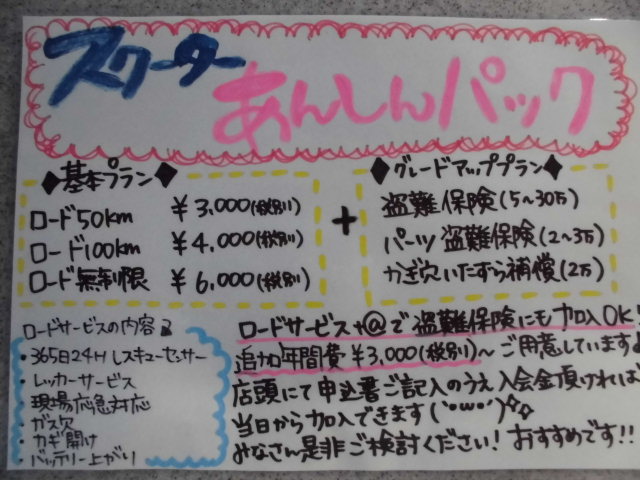 スクーター
あんしんパック
◆基本プラン◆
ロード50km ￥3,000(税別)
ロード100km ￥4,000(税別)
ロード無制限 ￥6,000(税別)
+
◆グレードアッププラン◆
盗難保険(5〜30万)
パーツ盗難保険(2〜3万)
かぎ穴いたずら補償(2万)
ロードサービスの内容
・365日24Hレスキューセンター
・レッカーサービス
現場応急対応
・ガス欠
・カギ開け
・バッテリー上がり
ロードサービス+@で盗難保険にも加入OK!
追加年間費￥3,000(税別)〜ご用意しています
店頭にて申込書ご記入のうえ入会金頂ければ
当日から加入できます(`・ω・´)
みなさん是非ご検討ください!おすすめです!!